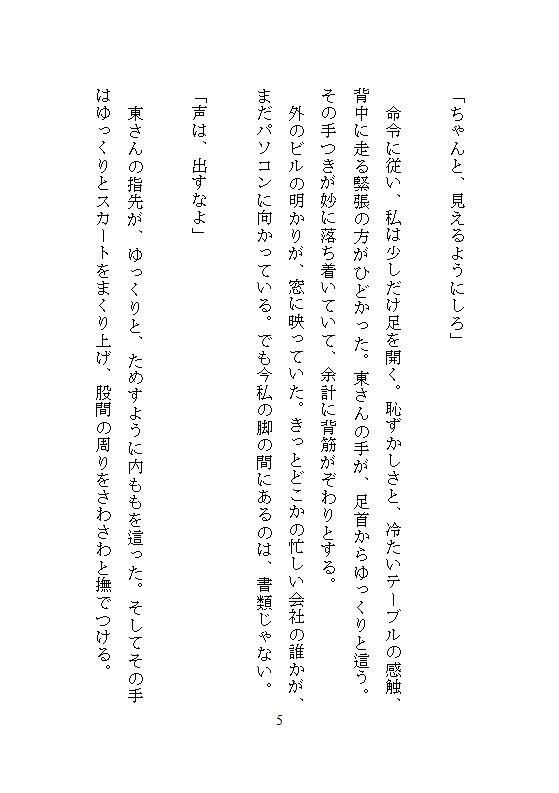 「ちゃんと、見えるようにしろ」
命令に従い、私は少しだけ足を開く。恥ずかしさと、冷たいテーブルの感触、
背中に走る緊張の方がひどかった。東さんの手が、足首からゆっくりと這う。
その手つきが妙に落ち着いていて、余計に背筋がぞわりとする。
外のビルの明かりが、窓に映っていた。きっとどこかの忙しい会社の誰かが、
まだパソコンに向かっている。でも今私の脚の間にあるのは、書類じゃない。
「声は、出すなよ」
東さんの指先が、ゆっくりと、ためすように内ももを這った。そしてその手
はゆっくりとスカートをまくり上げ、股間の周りをさわさわと撫でつける。
5